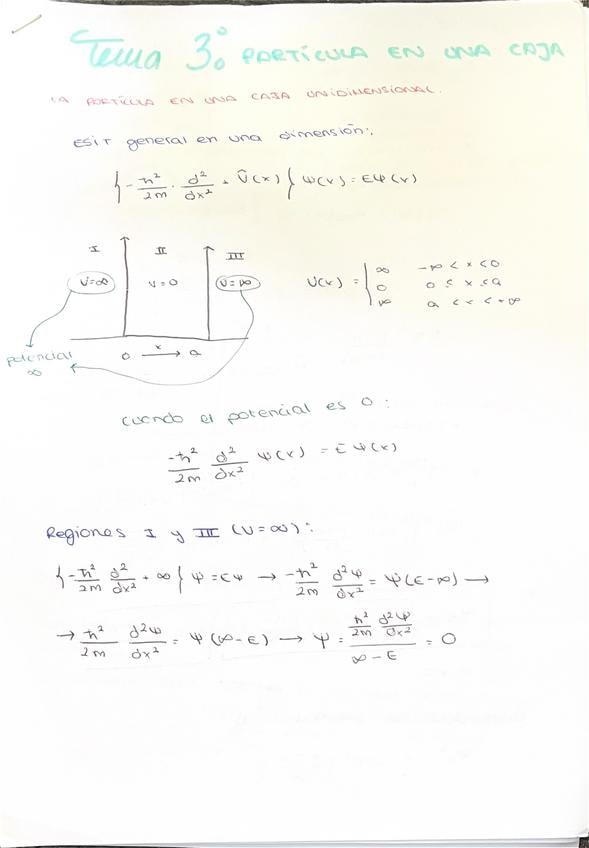 Tema 3: PARTÍCULA EN UNA CAJA
LA PARTÍCULA EN UNA CAJA UNIDIMENSIONAL.
ESIT general en una dimensión:
{-ħ²/2m · d²/dx² + Û(x)} Ψ(x) = EΨ(x)
I II III
V=∞ V=0 V=∞
U(x) = { ∞ -∞ < x < 0
0 0 ≤ x ≤ a
∞ a < x < +∞
potencial
∞
0 x → a
cuando el potencial es 0:
-ħ²/2m d²/dx² Ψ(x) = EΨ(x)
Regiones I y III (V=∞):
{-ħ²/2m d²/dx² + ∞} Ψ = EΨ → -ħ²/2m d²Ψ/dx² = Ψ(E-∞) →
→ ħ²/2m d²Ψ/dx² = Ψ(∞-E) → Ψ = (ħ²/2m d²Ψ/dx²)/(∞-E) = 0